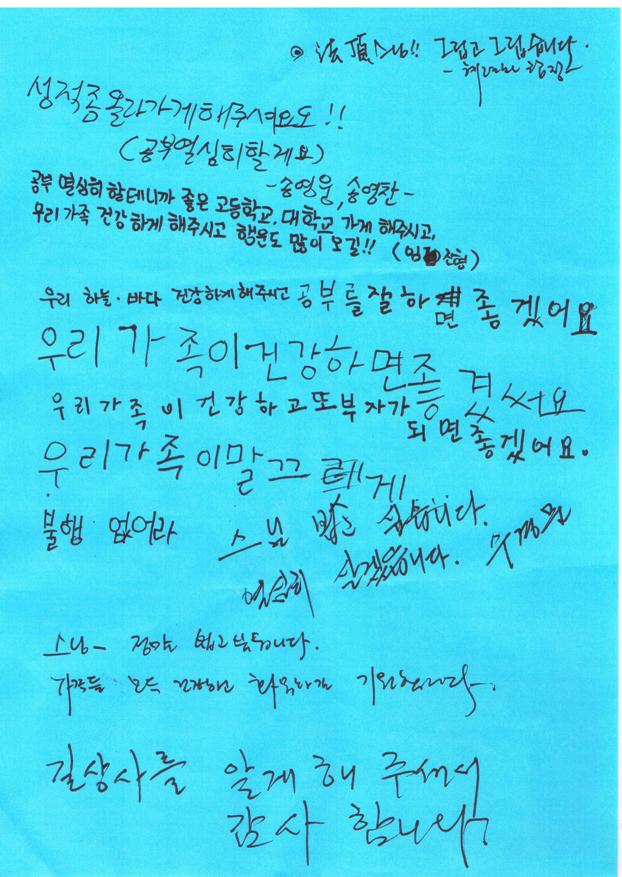 法頂스님!! 그립고 그립습니다.
성적좀올라가게해주셔요도!!
(공부열심히할게요)
-송영웅, 송영찬-
공부 열심히 할테니까 좋은 고등학교, 대학교 가게 해주시고,
우리 가족 건강하게 해주시고 행운도 많이 오길!!
우리 하늘·바다 건강하게해주시고 공부를잘하면 좋겠어요
우리가족이건강하면좀 겄써요
우리가족이건강하고또부자가
되면좋겠어요.
우리가족이말끄 테게
불행 없어라
스님 뵙고 싶습니다.
열심히 살겠습니다.
스님~ 정말 뵙고 싶습니다.
가족들 모두 건강하고 화목하길 기원합니다.
길상사를 알게 해 주셔서
감사 합니다